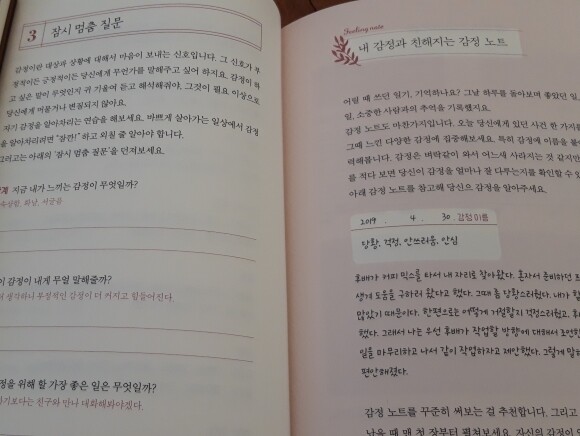 3 잠시 멈춤 질문
감정이란 대상과 상황에 대해서 마음이 보내는 신호입니다. 그 신호가 부
정적이든 긍정적이든 당신에게 무언가를 말해주고 싶어 하지요. 감정이 하
고 싶은 말이 무엇인지 귀 기울여 듣고 해석해줘야, 그것이 필요 이상으로
당신에게 머물거나 변질되지 않아요.
자기 감정을 알아차리는 연습을 해보세요. 바쁘게 살아가는 일상에서 감정
을 알아차리려면 "잠깐!" 하고 외칠 줄 알아야 합니다.
그러고는 아래의 '잠시 멈춤 질문'을 던져보세요.
지금 내가 느끼는 감정이 무엇일까?
속상함, 화남, 서글픔
이 감정이 내게 무얼 말해줄까?
생각하니 부정적인 감정이 더 커지고 힘들어진다.
정을 위해 할 가장 좋은 일은 무엇일까?
기보다는 친구와 만나 대화해봐야겠다.
Feeling note
내 감정과 친해지는 감정 노트
어릴 때 쓰던 일기, 기억하나요? 그날 하루를 돌아보며 좋았던 일,
일, 소중한 사람과의 추억을 기록했지요.
감정 노트도 마찬가지입니다. 오늘 당신에게 있던 사건 한 가지를
그때 느낀 다양한 감정에 집중해보세요. 특히 감정에 이름을 붙이
력해봅니다. 감정은 벼락같이 와서 어느새 사라지는 것 같지만
를 적다 보면 당신이 감정을 얼마나 잘 다루는지를 확인할 수 있
아래 감정 노트를 참고해 당신의 감정을 알아주세요.
2019. 4. 30. 감정 이름
당황, 걱정, 안쓰러움, 안심
후배가 커피 믹스를 타서 내 자리로 찾아왔다. 혼자서 준비하던 프
생겨 도움을 구하러 왔다고 했다. 그때 좀 당황스러웠다. 내가 할
많았기 때문이다. 한편으로는 어떻게 거절할지 걱정스러웠고, 후
했다. 그래서 나는 우선 후배가 작업할 방향에 대해서 조언한
일을 마무리하고 나서 같이 작업하자고 제안했다. 그렇게 말하
편안해졌다.
감정 노트를 꾸준히 써보는 걸 추천합니다. 그리고
날을 때 맨 첫 장부터 펼쳐보세요. 자신의 감정이 어